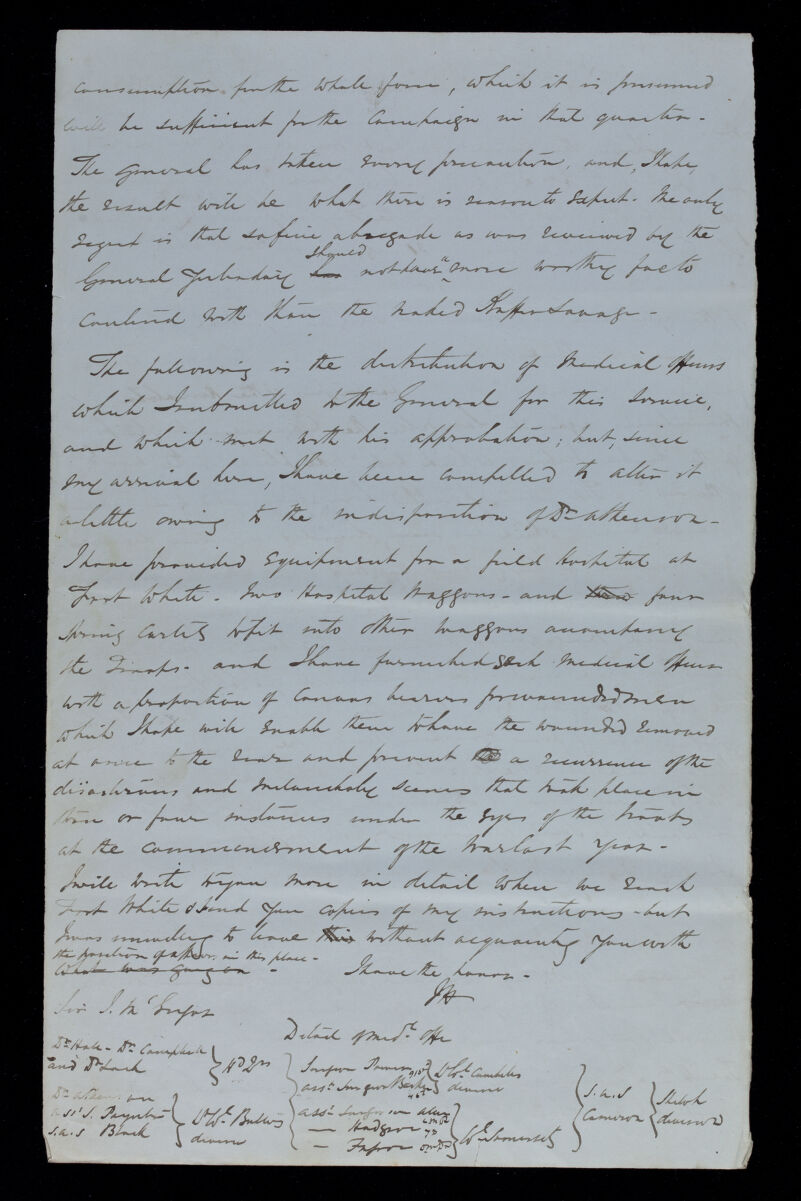 consumption for the whole force, which it is presumed
will be sufficient for the Campaign in that quarter -
The General has taken every precaution, and, I hope,
the result will be what there is reason to expect. The only
regret is that so fine a brigade as was reviewed by the
General yesterday should not have a more worthy foe to
contend with than the naked Kaffir Savage -
The following is the distribution of Medical Officers
which I submitted to the General for this Service,
and which met with his approbation; but, since
my arrival here, I have been compelled to alter it
a little owing to the indisposition of Dr Atkinson -
I have provided Equipment for a field Hospital at
Fort White. Two Hospital Waggons - and four
spring carts to fit into other waggons accompany
the Troops - and I have furnished each Medical Officer
with a proportion of Canvas bearers for wounded men
which I hope will enable them to have the wounded removed
at once to the rear and prevent a recurrence of the
disastrous and melancholy scenes that took place in
three or four instances under the eyes of the troops
at the commencement of the War last year -
I will write to you more in detail when we reach
Fort White & send you copies of my instructions - but
I was unwilling to leave this without acquainting you with
the position of affairs in this place -
what was going on -
I have the honor -
JH
Sir J. McGrigor
Detail of Medl Offrs
Dr Hall - Dr Campbell
and Dr
Hd Qrs
Surgeon
91st
Asst Surgeon
Lt Col. Campbell's
division
S.A.S
Cameron
division
a ss' S. Paynter
S.a.S Black
Lt Col.
division
Asst Surgeon
Hadgson
73
Fraser
Col. Somerset